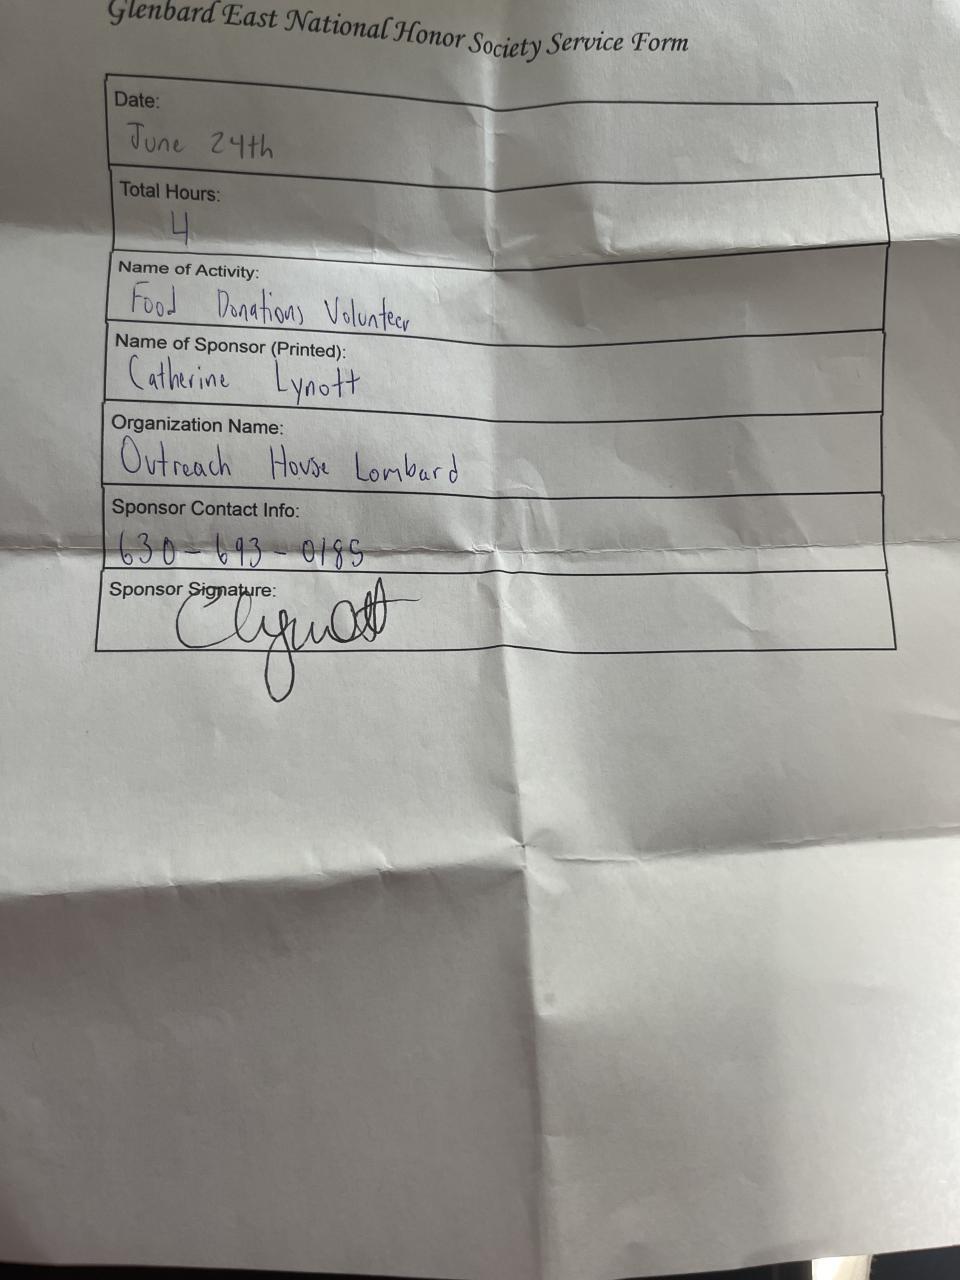 Glenbard East National Honor Society Service Form
Date:
June 24th
Total Hours:
4
Name of Activity:
Food Donations Volunteer
Name of Sponsor (Printed):
Catherine Lynott
Organization Name:
Outreach House Lombard
Sponsor Contact Info:
630-693-0185
Sponsor Signature:
CLynott